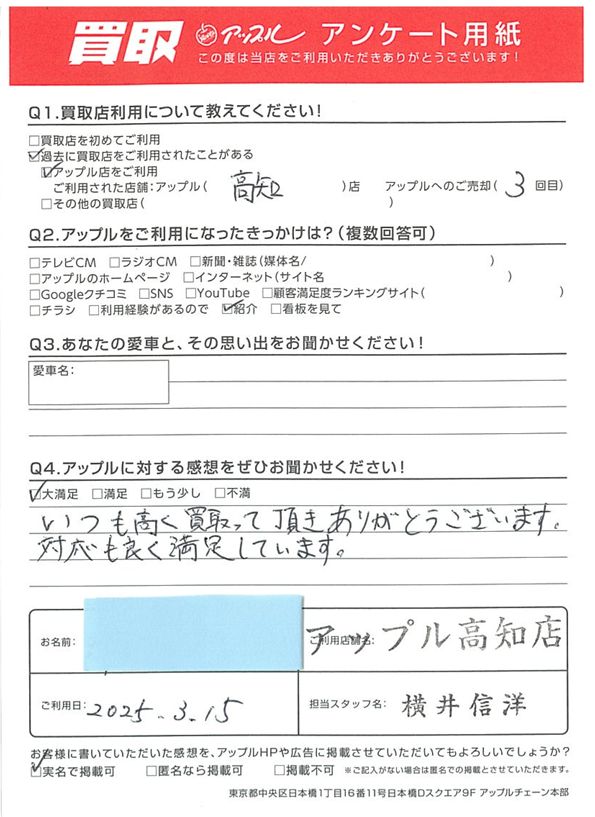 買取 アップル アンケート用紙
この度は当店をご利用いただきありがとうございます!
Q1.買取店利用について教えてください!
□買取店を初めてご利用
☑過去に買取店をご利用されたことがある
☑アップル店をご利用
ご利用された店舗:アップル( 高知 )店 アップルへのご売却( 3 回目)
□その他の買取店( )
Q2.アップルをご利用になったきっかけは?(複数回答可)
□テレビCM □ラジオCM □新聞・雑誌(媒体名/ )
□アップルのホームページ □インターネット(サイト名 )
□Googleクチコミ □SNS □YouTube □顧客満足度ランキングサイト( )
□チラシ □利用経験があるので ☑紹介 □看板を見て
Q3.あなたの愛車と、その思い出をお聞かせください!
愛車名:
Q4.アップルに対する感想をぜひお聞かせください!
☑大満足 □満足 □もう少し □不満
いつも高く買取って頂きありがとうございます。
対応も良く満足しています。
お名前:
ご利用店舗名: アップル高知店
ご利用日: 2025.3.15
担当スタッフ名: 横井信洋
お客様に書いていただいた感想を、アップルHPや広告に掲載させていただいてもよろしいでしょうか?
☑実名で掲載可 □匿名なら掲載可 □掲載不可 ※ご記入がない場合は匿名での掲載とさせていただきます。
東京都中央区日本橋1丁目16番11号日本橋Dスクエア9F アップルチェーン本部